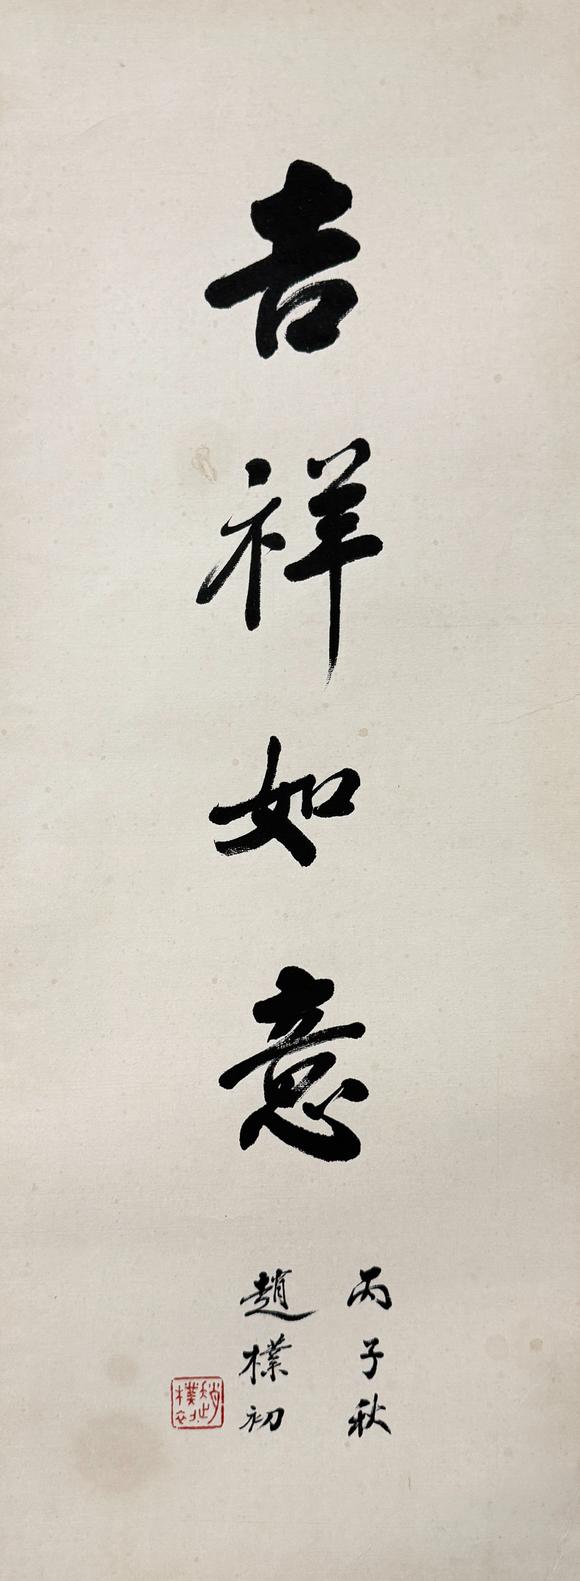 吉祥如意
丙子秋
趙樸初
趙樸初